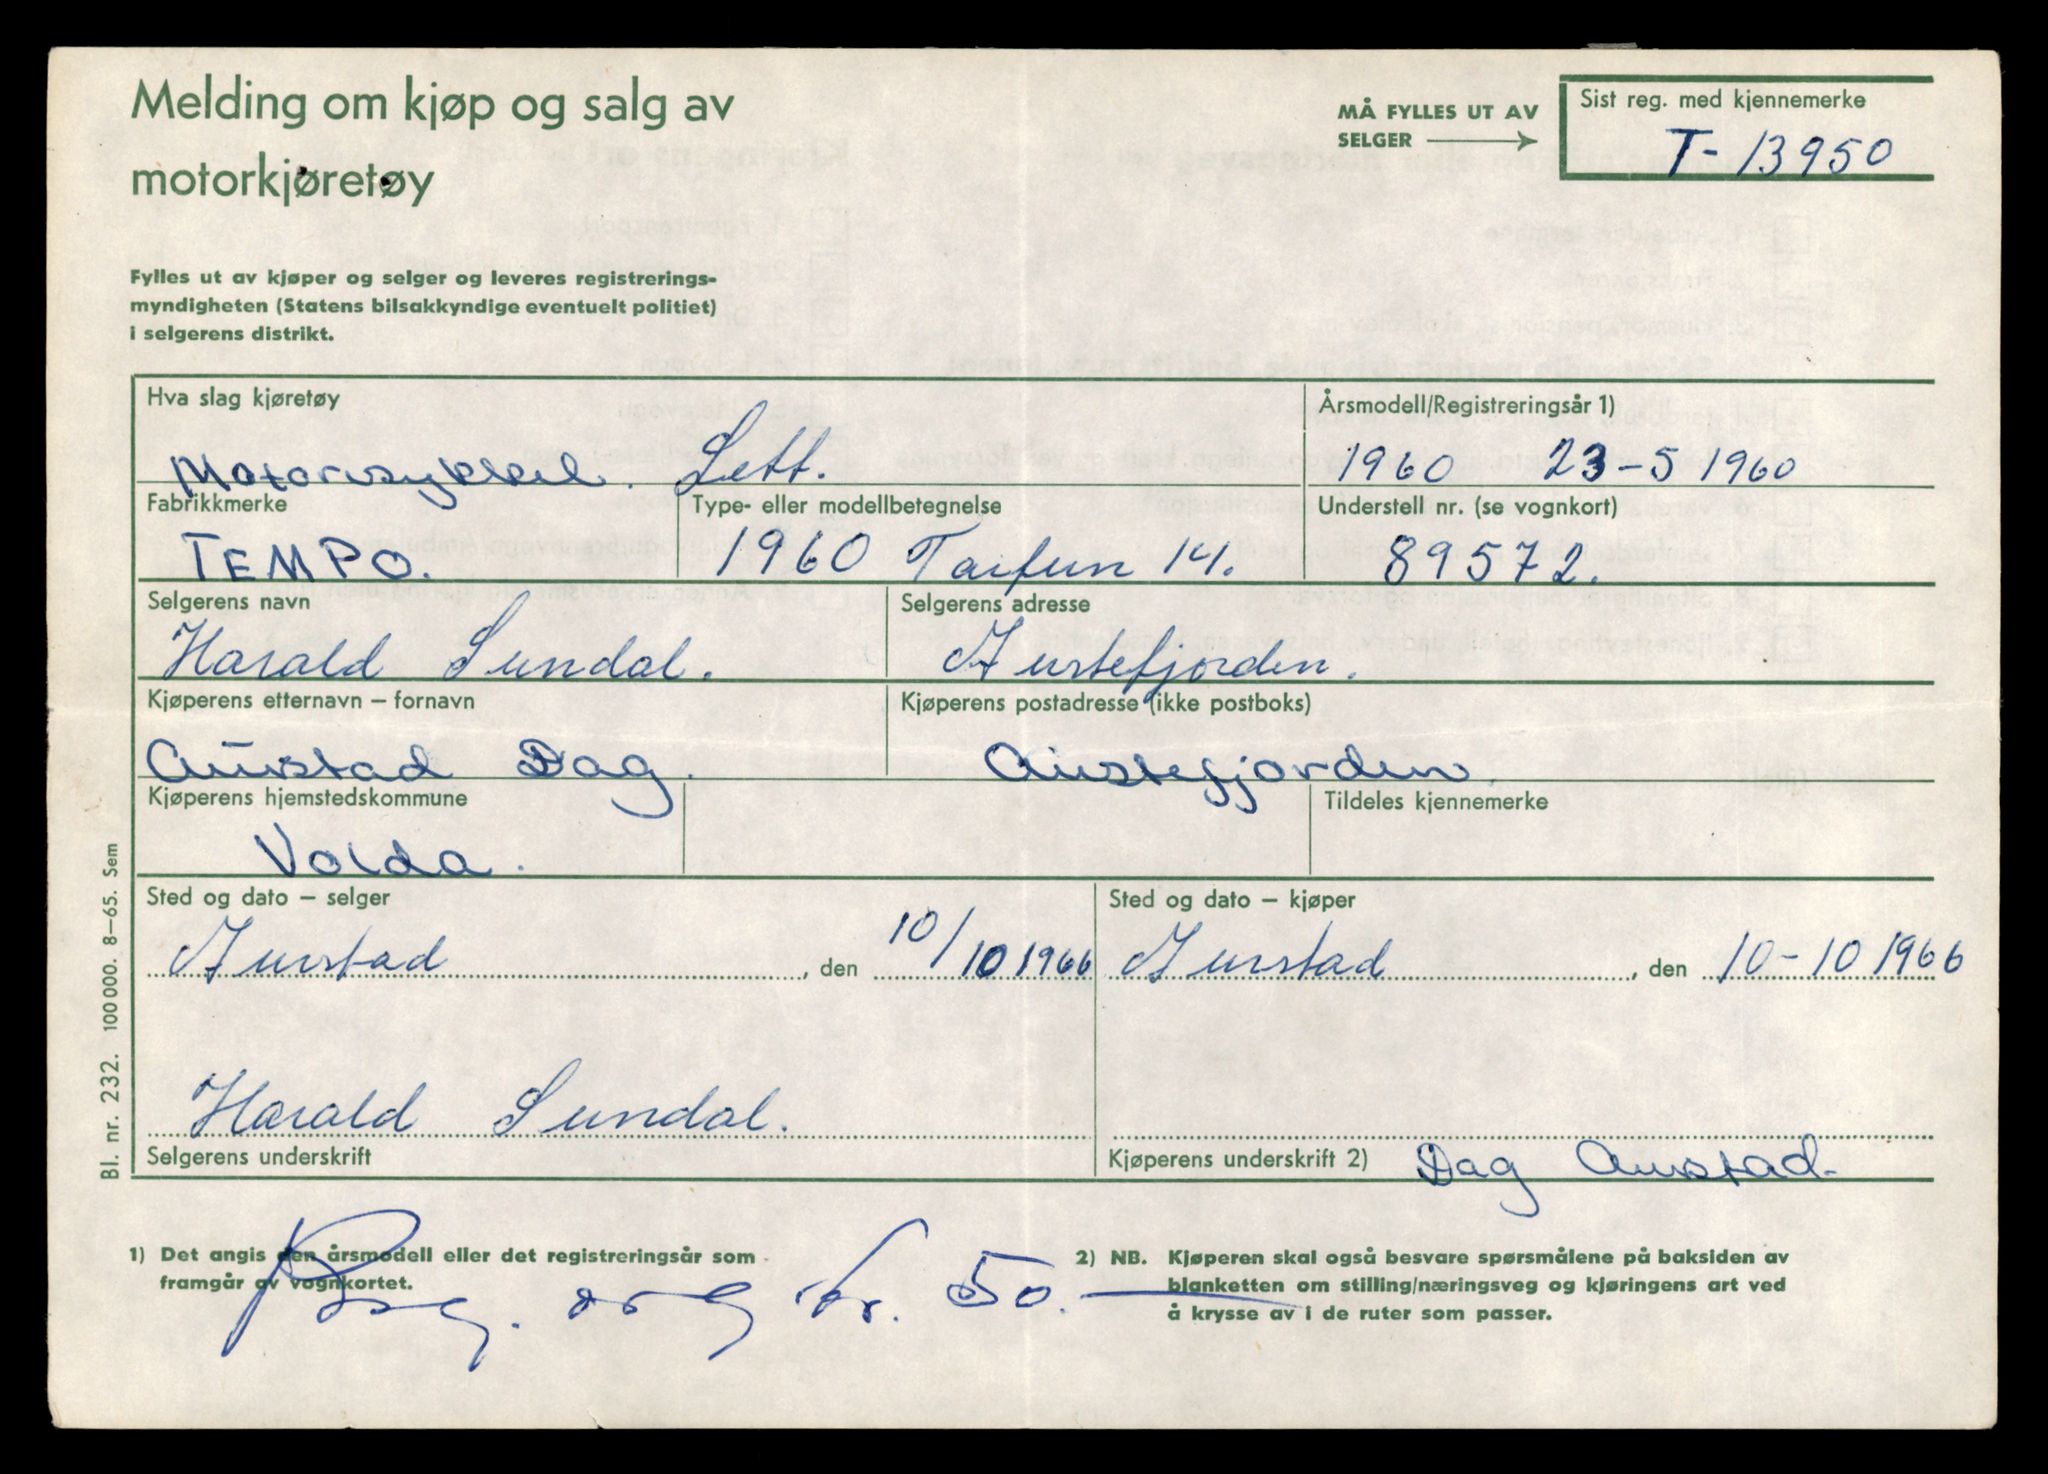 Melding om kjøp og salg av
motorkjøretøy
MÅ FYLLES UT AV
SELGER
Sist reg. med kjennemerke
T- 13950
Fylles ut av kjøper og selger og leveres registrerings-
myndigheten (Statens bilsakkyndige eventuelt politiet)
i selgerens distrikt.
Hva slag kjøretøy
Motorsykkel. Lett.
Årsmodell/Registreringsår 1)
1960 23-5 1960
Fabrikkmerke
TEMPO.
Type- eller modellbetegnelse
1960 Taifun 14.
Understell nr. (se vognkort)
89572.
Selgerens navn
Harald Sundal.
Selgerens adresse
Austefjorden.
Kjøperens etternavn – fornavn
Austad Dag.
Kjøperens postadresse (ikke postboks)
Austefjorden.
Kjøperens hjemstedskommune
Volda.
Tildeles kjennemerke
Sted og dato – selger
Aurstad, den 10/10 1966
Sted og dato – kjøper
Aurstad, den 10-10 1966
Harald Sundal.
Selgerens underskrift
Kjøperens underskrift 2) Dag Austad.
Bl. nr. 232. 100 000. 8–65. Sem
1) Det angis den årsmodell eller det registreringsår som
framgår av vognkortet.
kr. 50.
2) NB. Kjøperen skal også besvare spørsmålene på baksiden av
blanketten om stilling/næringsveg og kjøringens art ved
å krysse av i de ruter som passer.